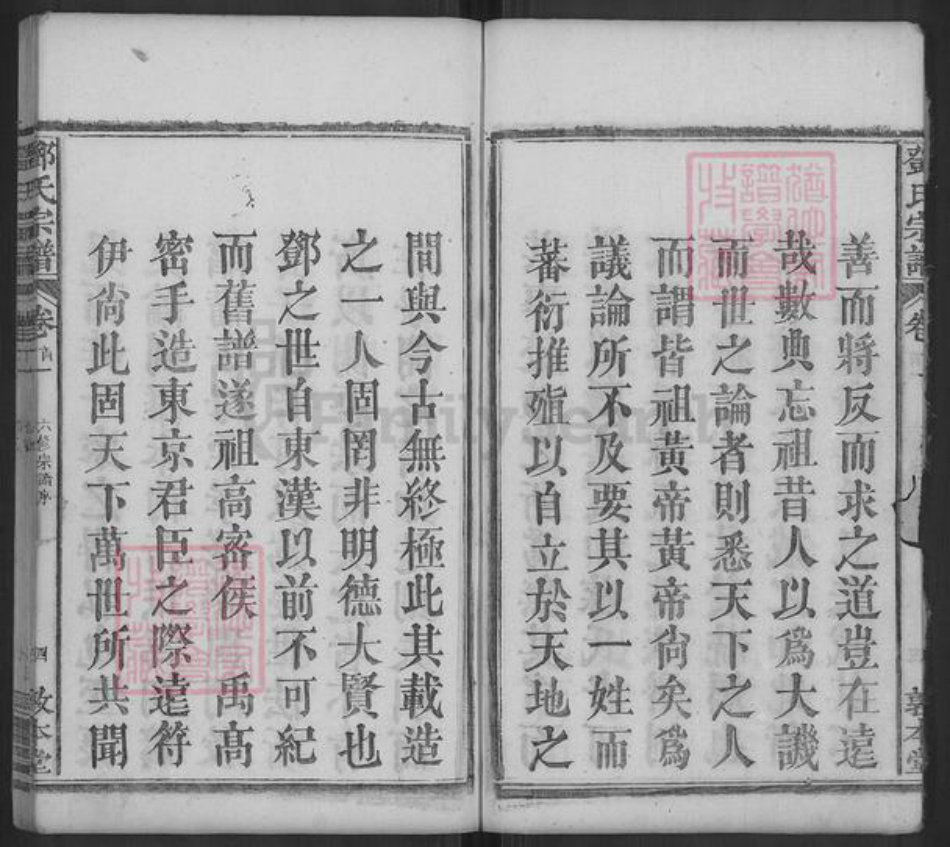 鄧氏宗譜
卷
敦本堂
善而將反而求之道豈在遠
哉數典忘祖昔人以爲大譏
而世之論者則悉天下之人
而謂皆祖黃帝黃帝尙矣爲
議論所不及要其以一姓而
蕃衍推殖以自立於天地之
間與今古無終極此其載造
之一人固罔非明德大賢也
鄧之世自東漢以前不可紀
而舊譜遂祖高密侯禹高
密手造東京君臣之際遠符
伊尙此固天下萬世所共聞
鄧氏宗譜
卷首一
六修宗譜序
四
敦本堂
FamilySearch